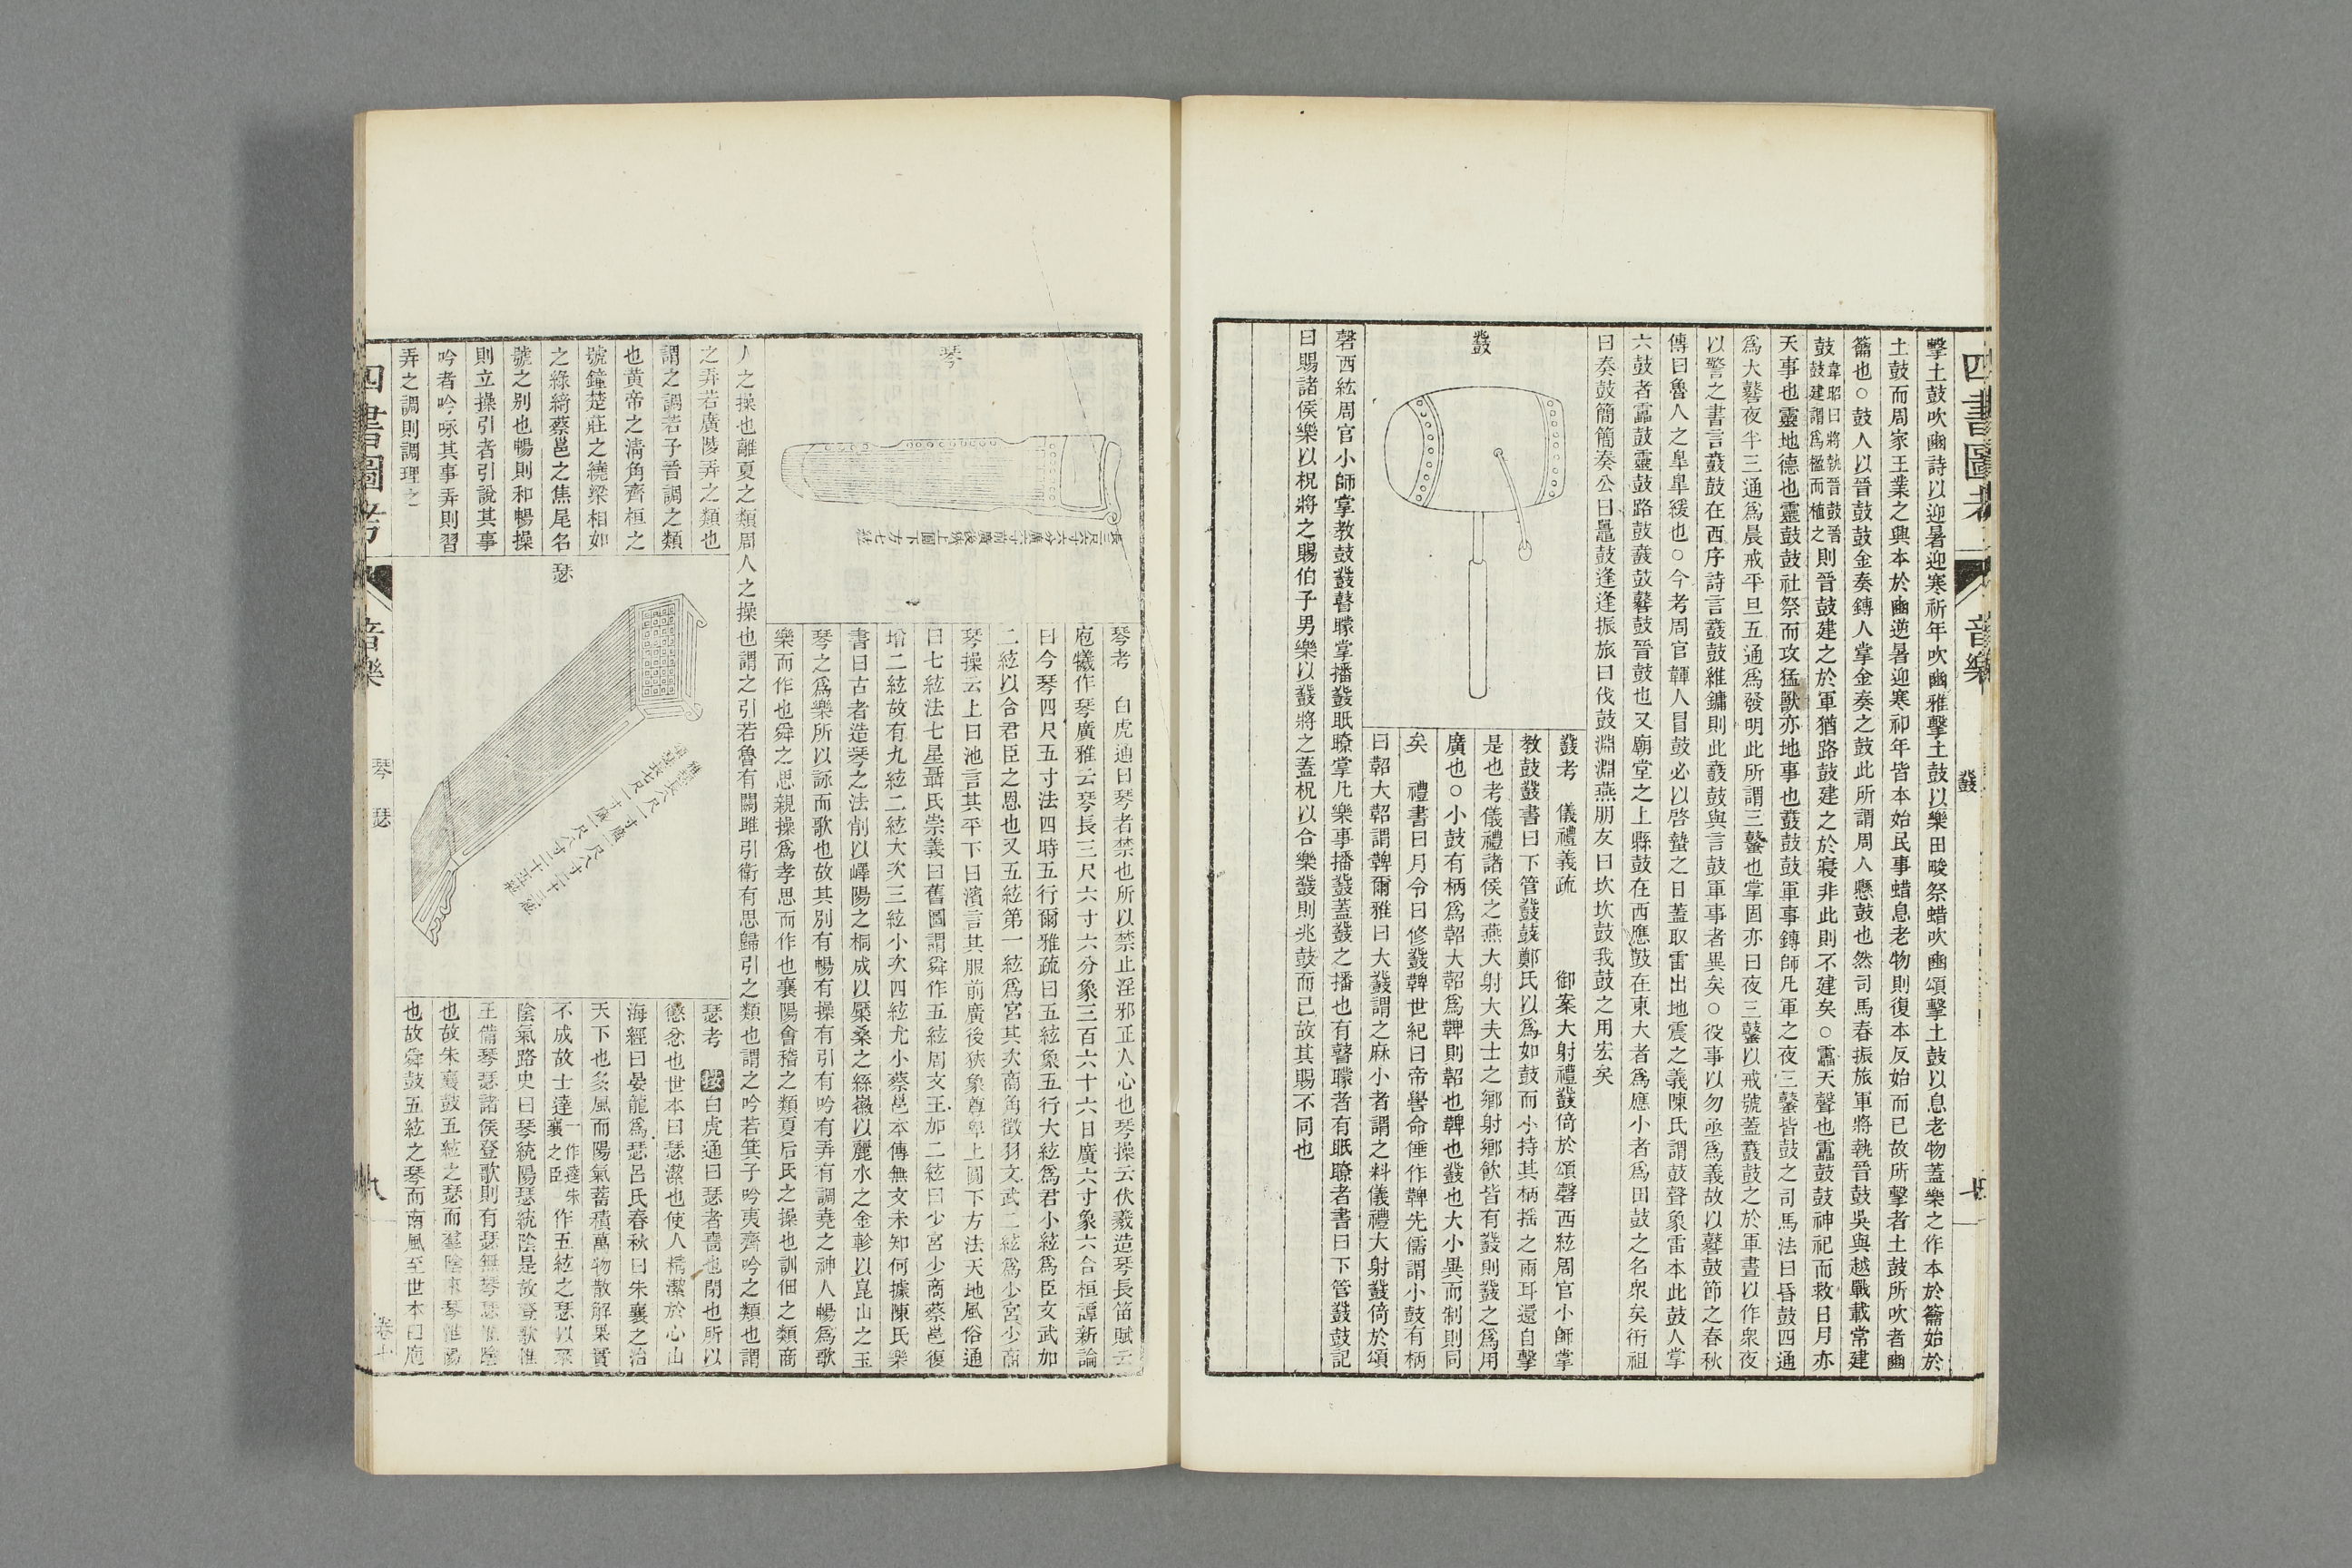 四書圖考
音樂
鼗
擊土鼓吹豳詩以迎暑迎寒祈年吹豳雅擊土鼓以樂田畯祭蜡吹豳頌擊土鼓以息老物蓋樂之作本於籥始於
土鼓而周家王業之興本於豳逆暑迎寒祈年皆本始民事蜡息老物則復本反始而已故所擊者土鼓所吹者豳
籥也○鼓人以晉鼓鼓金奏鎛人掌金奏之鼓此所謂周人懸鼓也然司馬春振旅軍將執晉鼓吳與越戰載常建
鼓韋昭曰將執晉鼓晉鼓建謂爲楹而植之則晉鼓建之於軍猶路鼓建之於寢非此則不建矣○靁天聲也靁鼓鼓神祀而救日月亦
天事也靈地德也靈鼓鼓社祭而攻猛獸亦地事也鼖鼓鼓軍事鎛師凡軍之夜三鼜皆鼓之司馬法曰昏鼓四通
爲大鼜夜半三通爲晨戒平旦五通爲發明此所謂三鼜也掌固亦曰夜三鼜以戒號蓋鼖鼓之於軍晝以作衆夜
以警之書言鼖鼓在西序詩言鼖鼓維鏞則此鼖鼓與言鼓軍事者異矣○役事以勿亟爲義故以鼛鼓節之春秋
傳曰魯人之皐皐緩也○今考周官韗人冒鼓必以啓蟄之日蓋取雷出地震之義陳氏謂鼓聲象雷本此鼓人掌
六鼓者靁鼓靈鼓路鼓鼖鼓鼛鼓晉鼓也又廟堂之上縣鼓在西應鼓在東大者爲應小者爲田鼓之名衆矣衎祖
曰奏鼓簡簡奏公曰鼉鼓逢逢振旅曰伐鼓淵淵燕朋友曰坎坎鼓我鼓之用宏矣
鼗
鼗考　儀禮義疏　御案大射禮鼗倚於頌磬西紘周官小師掌
教鼓鼗書曰下管鼗鼓鄭氏以爲如鼓而小持其柄搖之兩耳還自擊
是也考儀禮諸侯之燕大射大夫士之鄉射鄉飲皆有鼗則鼗之爲用
廣也○小鼓有柄爲鞀大鞀爲鞞則鞀也鞞也鼗也大小異而制則同
矣　禮書曰月令曰修鼗鞞世紀曰帝嚳命倕作鞞先儒謂小鼓有柄
曰鞀大鞀謂鞞爾雅曰大鼗謂之麻小者謂之料儀禮大射鼗倚於頌
磬西紘周官小師掌教鼓鼗瞽矇掌播鼗眂瞭掌凡樂事播鼗蓋鼗之播也有瞽矇者有眂瞭者書曰下管鼗鼓記
曰賜諸侯樂以柷將之賜伯子男樂以鼗將之蓋柷以合樂鼗則兆鼓而已故其賜不同也
琴
長三尺六寸六分廣六寸前廣後狹上圓下方七絃
琴考　白虎通曰琴者禁也所以禁止淫邪正人心也琴操云伏羲造琴長笛賦云
庖犧作琴廣雅云琴長三尺六寸六分象三百六十六日廣六寸象六合桓譚新論
曰今琴四尺五寸法四時五行爾雅疏曰五絃象五行大絃爲君小絃爲臣文武加
二絃以合君臣之恩也又五絃第一絃爲宮其次商角徵羽文武二絃爲少宮少商
琴操云上曰池言其平下曰濱言其服前廣後狹象尊卑上圓下方法天地風俗通
曰七絃法七星聶氏崇義曰舊圖謂舜作五絃周文王加二絃曰少宮少商蔡邕復
增二絃故有九絃二絃大次三絃小次四絃尤小蔡邕本傳無文未知何據陳氏樂
書曰古者造琴之法削以嶧陽之桐成以檿桑之絲徽以麗水之金軫以崑山之玉
琴之爲樂所以詠而歌也故其別有暢有操有引有吟有弄有調堯之神人暢爲歌
樂而作也舜之思親操爲孝思而作也襄陽會稽之類夏后氏之操也訓佃之類商
人之操也離夏之類周人之操也謂之引若魯有關雎引衛有思歸引之類也謂之吟若箕子吟夷齊吟之類也謂
之弄若廣陵弄之類也
謂之調若子晉調之類
也黃帝之清角齊桓之
號鐘楚莊之繞梁相如
之綠綺蔡邕之焦尾名
號之別也暢則和暢操
則立操引者引說其事
吟者吟咏其事弄則習
弄之調則調理之
瑟
雅瑟長八尺一寸廣一尺八寸二十三絃
頌瑟長七尺二寸廣一尺八寸二十五絃
瑟考　按白虎通曰瑟者嗇也閉也所以
懲忿也世本曰瑟潔也使人精潔於心山
海經曰晏龍爲瑟呂氏春秋曰朱襄之治
天下也多風而陽氣蓄積萬物散解果實
不成故士達一作逹朱襄之臣作五絃之瑟以來
陰氣路史曰琴統陽瑟統陰是故登歌惟
王備琴瑟諸侯登歌則有瑟無琴瑟惟陰
也故朱襄鼓五絃之瑟而羣陰來琴惟陽
也故舜鼓五絃之琴而南風至世本曰庖
四書圖考
音樂
琴
瑟
九
卷十